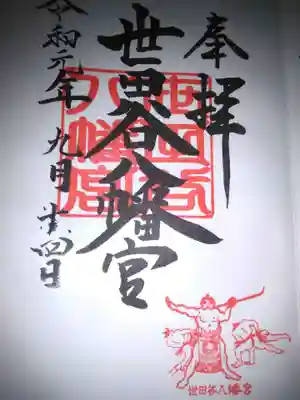 奉拝
世田谷八幡宮
令和元年九月廿四日
世田谷八幡宮
世田谷八幡宮